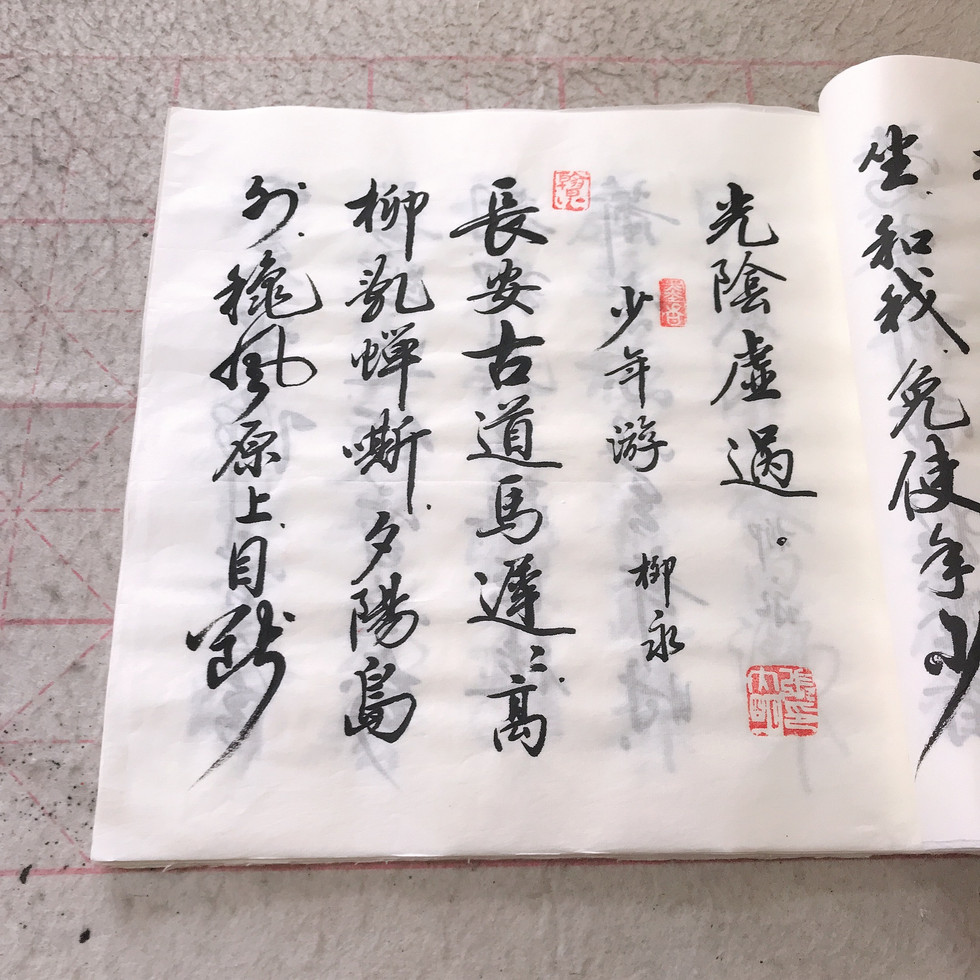 坐和我免使年少
光陰虛過。
少年游 柳永
長安古道馬遲〻高
柳亂蟬嘶夕陽島
外穐風原上目斷